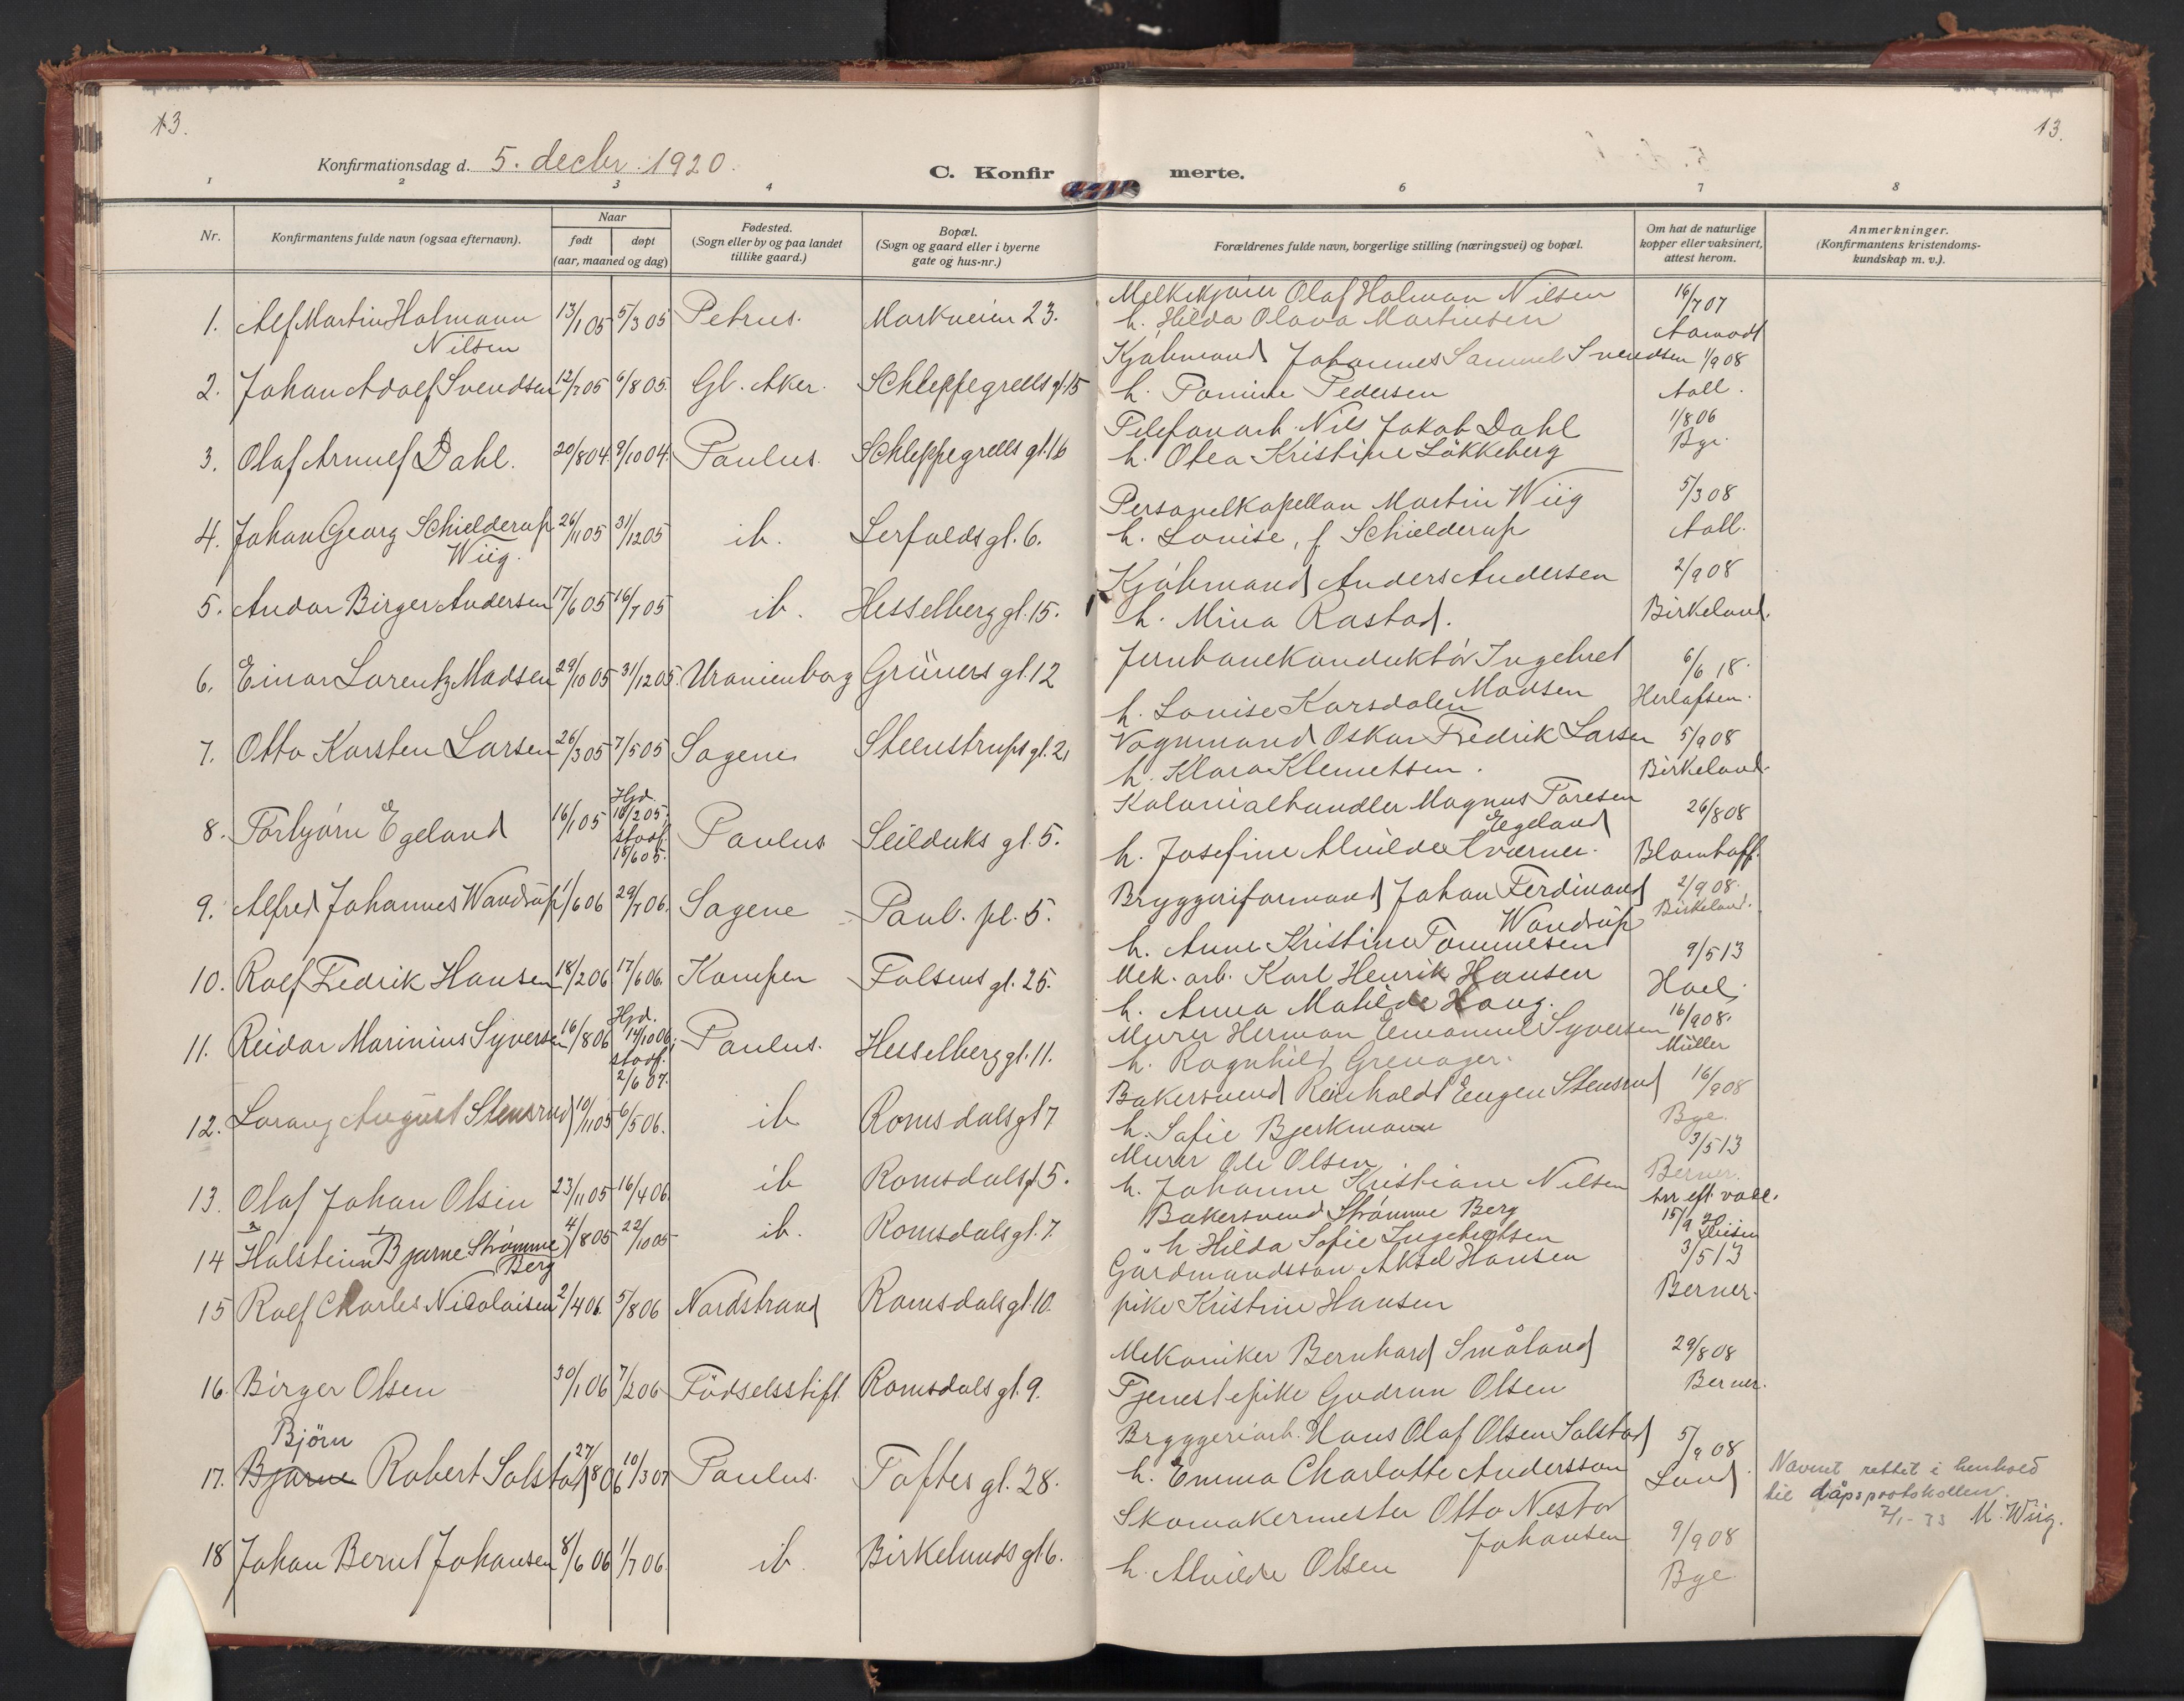 13.
13.
Konfirmationsdag d. 5. decbr. 1920.
C. Konfirmerte.
1 2 3 4 6 7 8
Nr.
Konfirmantens fulde navn (ogsaa efternavn).
Naar
født
døpt
(aar, maaned og dag)
Fødested.
(Sogn eller by og paa landet
tillike gaard.)
Bopæl.
(Sogn og gaard eller i byerne
gate og hus-nr.)
Forældrenes fulde navn, borgerlige stilling (næringsvei) og bopæl.
Om hat de naturlige
kopper eller vaksinert,
attest herom.
Anmerkninger.
(Konfirmantens kristendoms-
kundskap m. v.).
1. Alf Martin Holmann Nilsen 13/1 05 5/3 05 Petrus. Markveien 23.
Melkekjører Olaf Holman Nilsen 16/7 07
h. Hilda Olava Martinsen Aamodt
2. Johan Adolf Svendsen 12/7 05 6/8 05 Gl. Aker. Schleppegrells gt. 15
Kjøbmand Johannes Samuel Svendsen 1/9 08
h. Pedersen Aall.
3. Olaf Arnulf Dahl. 20/8 04 9/10 04. Paulus. Schleppegrells gt. 16
Telefonarb. Nils Jakob Dahl 1/8 06
h. Olea Kristine Løkkeberg Bye.
4. Johan Georg Schielderup Wiig. 26/11 05 31/12 05 ib. Lerfalds gt. 6.
Personelkapellan Martin Wiig 5/3 08
h. Louise, f. Schielderup Aall.
5. Andor Birger Andersen 17/6 05 16/7 05 ib. Hesselberg gt. 15.
Kjøbmand Anders Andersen 2/9 08
h. Mina Rastad. Birkeland.
6. Einar Lorentz Madsen 29/10 05 31/12 05. Uranienborg Grüners gt. 12
Jernbanekonduktør Ingebret Madsen 6/6 18.
h. Louise Korsdalen Herlofsen.
7. Otto Karsten Larsen 26/3 05 7/5 05 Sagene Steenstrups gt. 21
Vognmand Oskar Fredrik Larsen 5/9 08
h. Klara Klemetsen. Birkeland.
8. Torbjørn Egeland 16/1 05 Hjd. 16/2 05. stadf. 18/6 05. Paulus Seilduks gt. 5.
Kolonialhandler Magnus Toresen Egeland 26/8 08
h. Josefine Alvilde Kværner. Blomhoff.
9. Alfred Johannes Wandrup 1/6 06 29/7 06. Sagene Paul. pl. 5.
Bryggeriformand Johan Ferdinand Wandrup 2/9 08.
h. Anne Kristine Tommesen Birkeland.
10. Rolf Fredrik Hansen 18/2 06 17/6 06. Kampen Falsens gt. 25.
Mek. arb. Karl Henrik Hansen 9/5 13
h. Anna Matilde Haug. Hoel
11. Reidar Marinius Syversen 16/8 06 Hjd. 14/10 06. stadf. 2/6 07. Paulus. Hesselberg gt. 11.
Murer Herman Emanuel Syversen 16/9 08.
h. Ragnhild Grenager. Müller
12. Lorang August Stensrud 10/11 05 6/5 06. ib Romsdals gt 7
Bakersvend Reinholdt Eugen Stensrud 16/9 08
h. Sofie Bjerkmann Bye.
13. Olaf Johan Olsen 23/11 05 16/4 06. ib Romsdals gt 5.
Murer Ole Olsen 3/5 13
h. Johanne Kristiane Nilsen Berner.
14 Halstein Bjarne Strømme Berg 4/8 05 22/10 05 ib. Romsdals gt. 7.
Bakersvend Strømme Berg 15/9 20
h Hilda Sofie Ingebretsen
15 Rolf Charles Nicolaisen 2/4 06. 5/8 06 Nordstrand Romsdals gt. 10.
Gårdmandssøn Aksel Hansen 3/5 13
pike Kristine Hansen Berner.
16. Birger Olsen 30/1 06 7/2 06 Fødselsstift. Romsdals gt. 9.
Mekaniker Bernhard Småland 29/8 08
Tjenestepike Gudrun Olsen Berner.
Bjørn
17. Bjarne Robert Solstad 27/ 06 10/3 07 Paulus. Toftes gt. 28.
Bryggeriarb. Hans Olaf Olsen Solstad 5/9 08
h. Emma Charlotte Andersson Lund
Navnet rettet i henhold
til dåpsprotokollen.
2/1-33 M. Wiig.
18 Johan Bernt Johansen 8/6 06 1/7 06. ib. Birkelunds gt 6.
Skomakermester Otto Nestor Johansen 9/9 08
h. Alvilde Olsen Bye